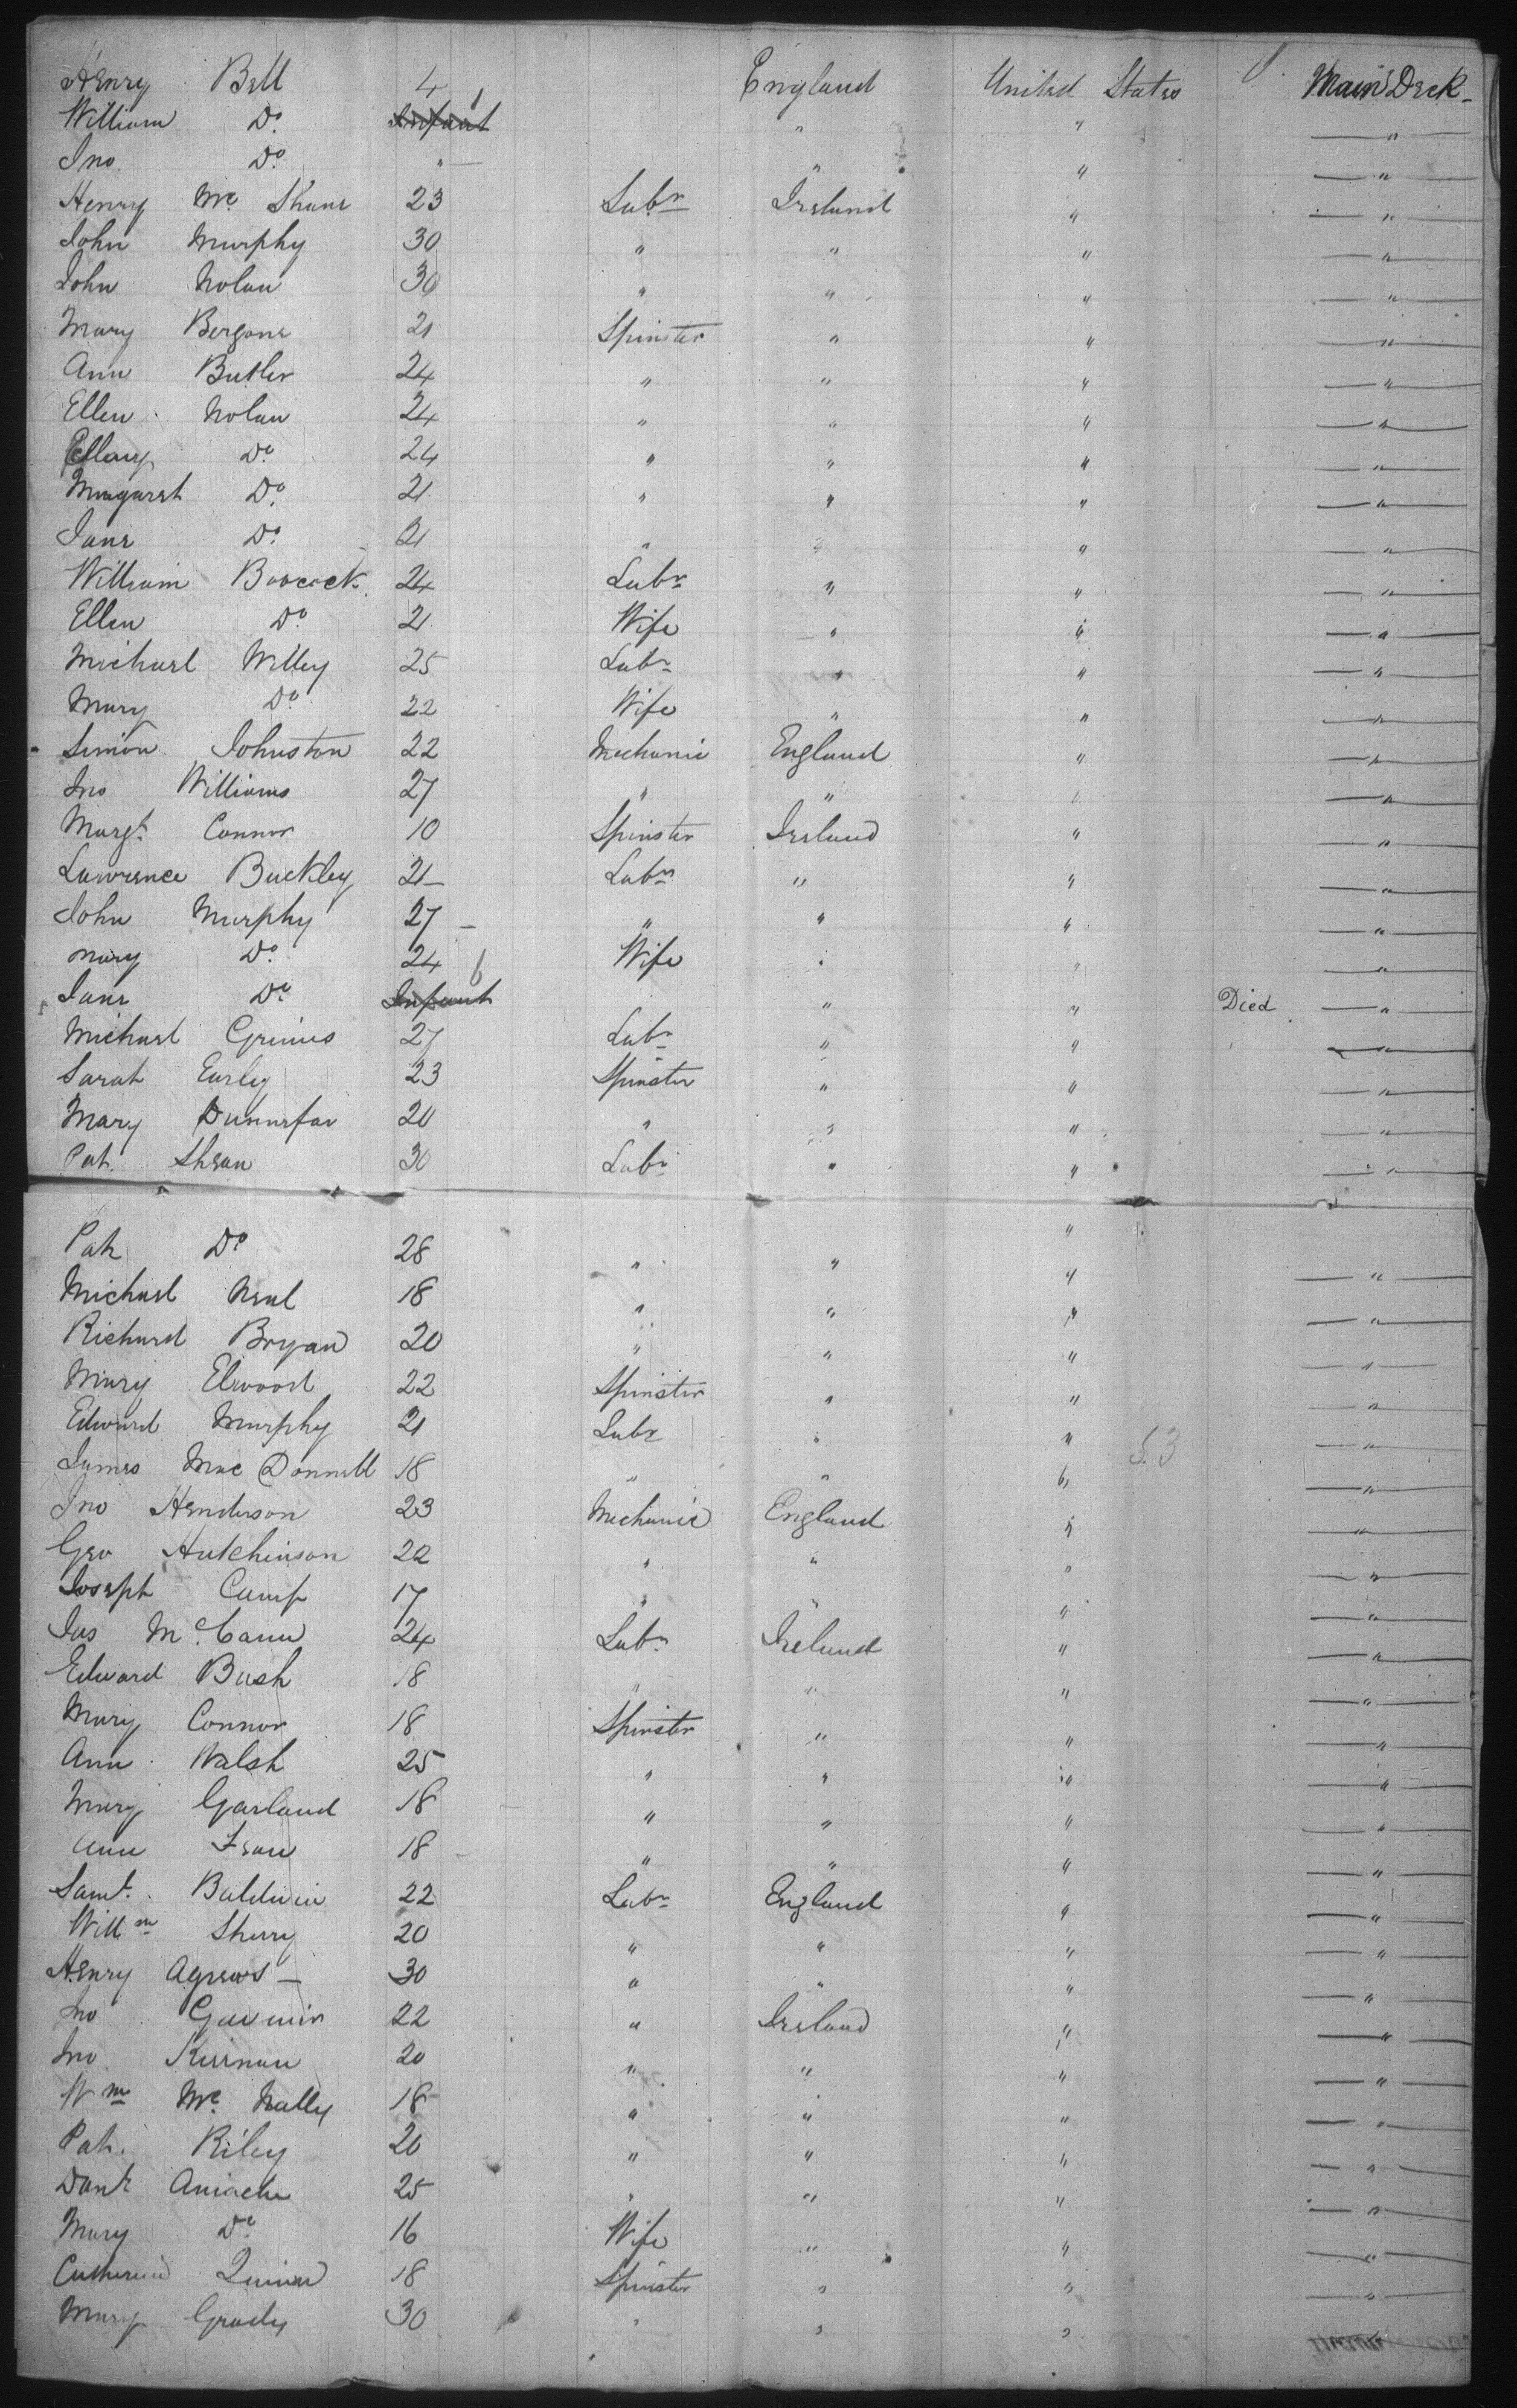 Henry Bell 4 England United States Main Deck
William Do. Infant 1 " " "
Jno. Do. " " " "
Henry Mc. Shane 23 Labr Ireland " "
John Murphy 30 " " " "
John Nolan 30 " " " "
Mary Bergane 21 Spinster " " "
Ann Butler 24 " " " "
Ellen Nolan 24 " " " "
Do. 24 " " " "
Margaret Do. 21 " " " "
Jane Do. 21 " " " "
William 24 Labr " " "
Ellen Do. 21 Wife " " "
Michael Willey 25 Labr " " "
Mary Do. 22 Wife " " "
Simon Johnston 22 Mechanic England " "
Jno Williams 27 " " " "
Margt. Connor 10 Spinster Ireland " "
Lawrence Buckley 21 Labr " " "
John Murphy 27 " " " "
Mary Do. 24 Wife " " "
Jane Do. Infant 6 " " Died "
Michael Grimes 27 Labr " " "
Sarah Earley 23 Spinster " " "
Mary 20 " " " "
Pat. Shean 30 Labr " " "
Pat Do 28 " " " "
Michael Neal 18 " " " "
Richard Bryan 20 " " " "
Mary Elwood 22 Spinster " " "
Edward Murphy 21 Labr " " "
James Mac Donnell 18 " " " 53 "
Jno Henderson 23 Mechanic England " "
Geo Hutchinson 22 " " " "
Joseph Camp 17 " " " "
Jas Mc. Cann 24 Labr Ireland " "
Edward Bush 18 " " " "
Mary Connor 18 Spinster " " "
Ann Walsh 25 " " " "
Mary Garland 18 " " " "
Ann 18 " " " "
Saml. Baldwin 22 Labr England " "
Willm Sherry 20 " " " "
Henry Agrews 30 " " " "
Jno 22 " Ireland " "
Jno Kiernan 20 " " " "
Wm Mc. Nally 18 " " " "
Pat. Riley 20 " " " "
Danl 25 " " " "
Mary Do. 16 Wife " " "
Catherine Quinn 18 Spinster " " "
Mary Grady 30 " " "